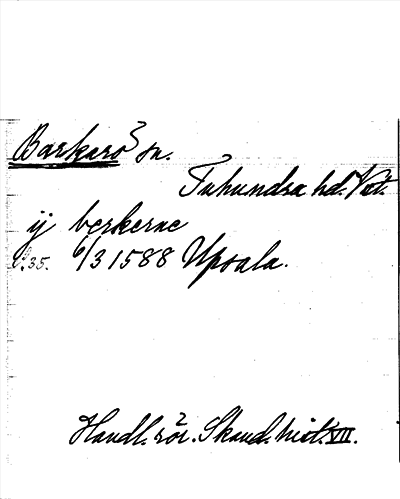 Barkarö sn.
Tuhundra hd. Vst.
ij berkerne
s. 35. 6/3 1588 Upsala.
Handl. rör. Skand. hist. VII.